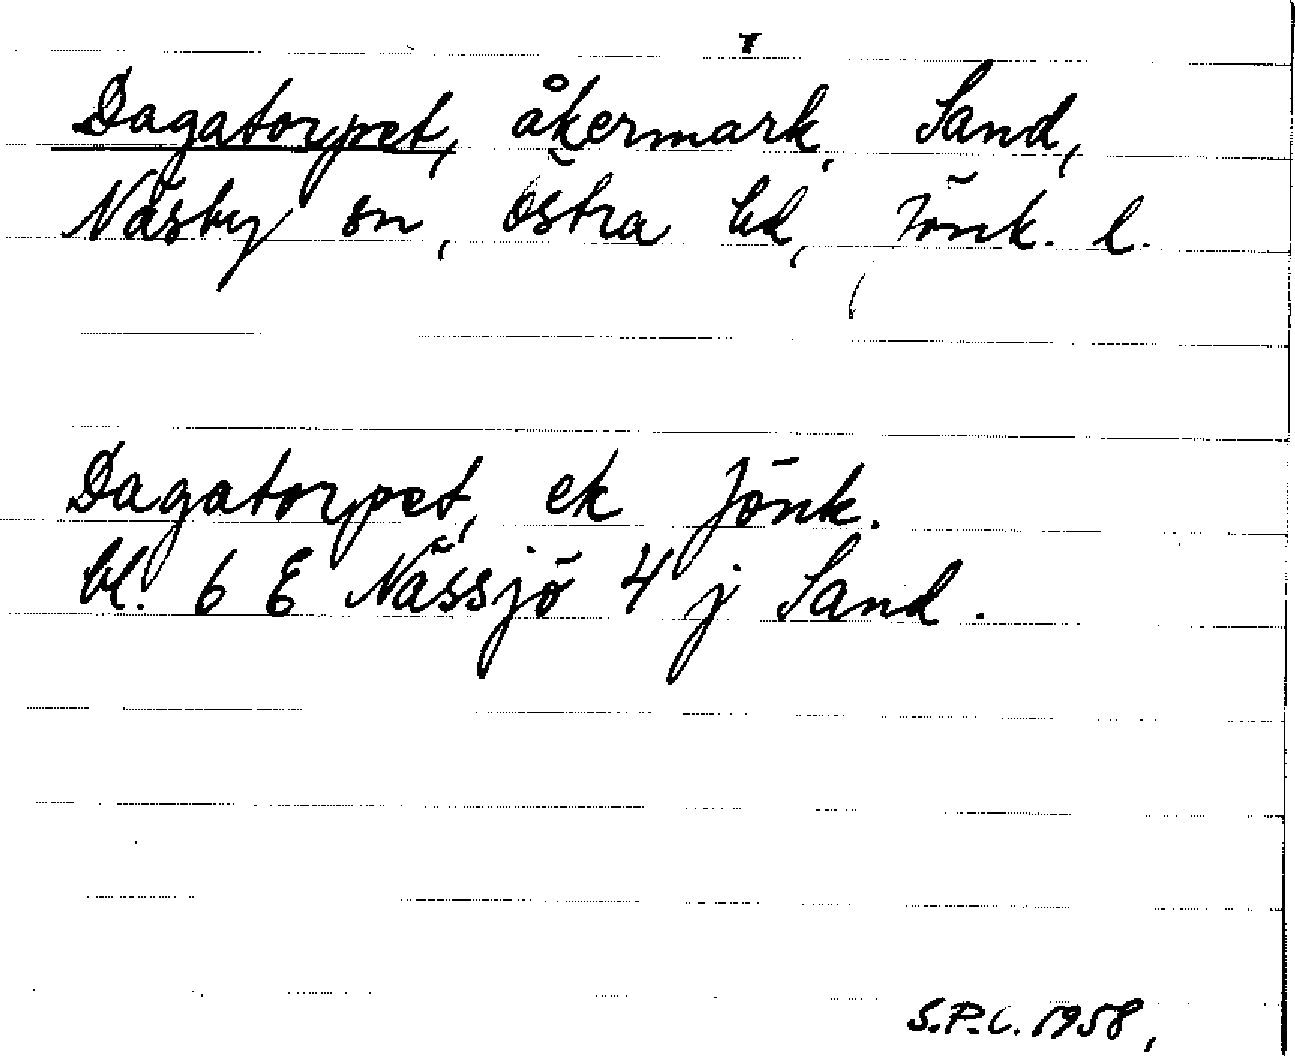 Dagatorpet, åkermark, Sand,
Näsby sn, Östra hd, Jönk. l.
Dagatorpet, ek Jönk.
bl. 6 E Nässjö 4 j Sand.
S.P.C. 1958,